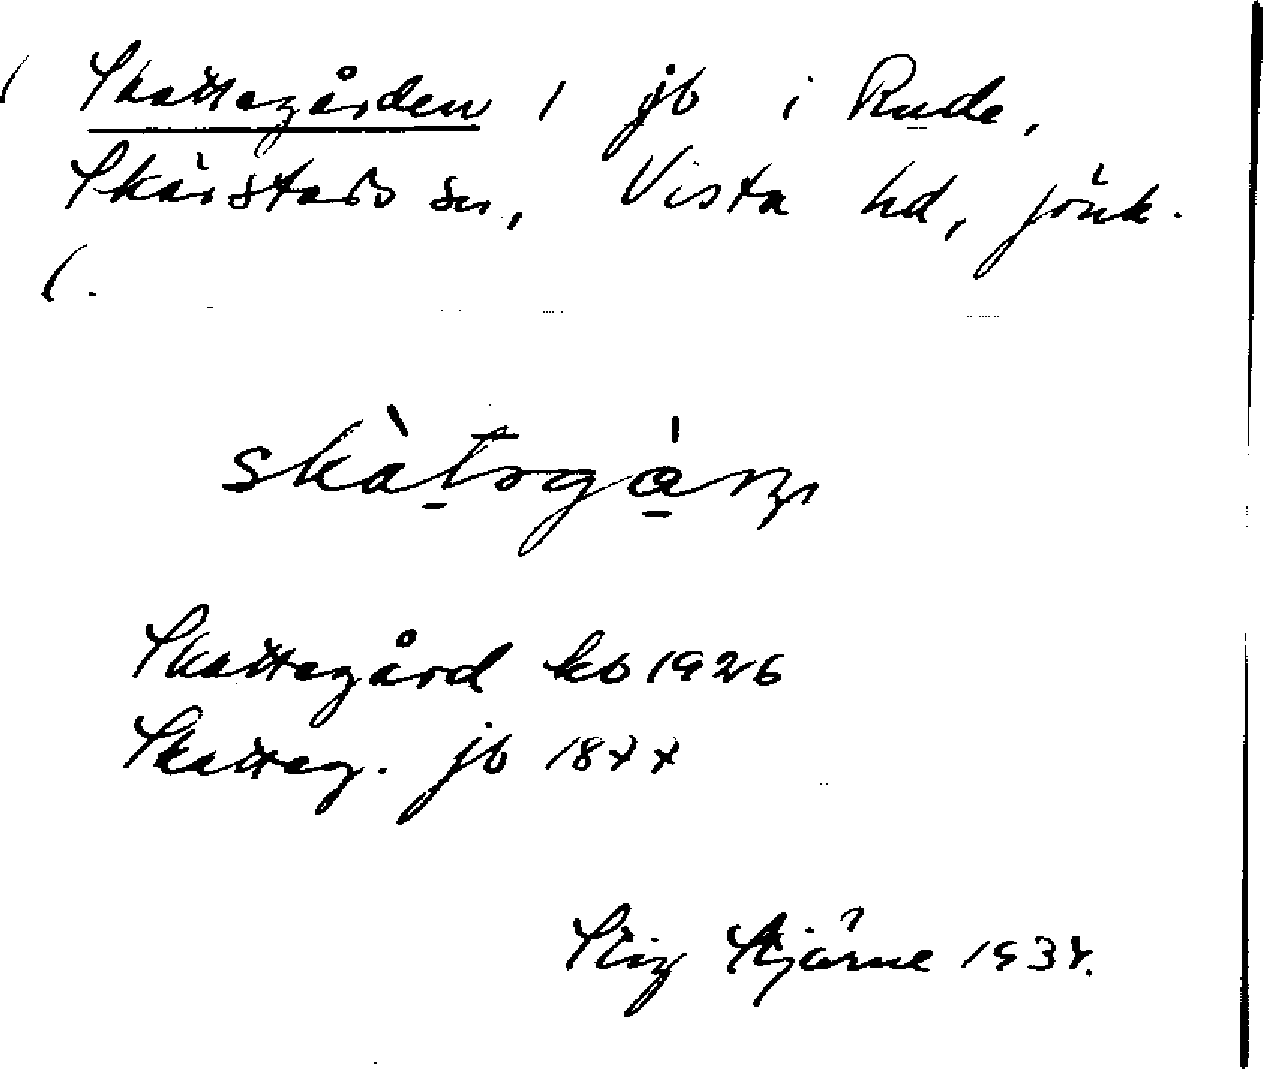 Skattegården 1 jb i Rude,
Skärstads sn, Vista hd, Jönk.
l.
Skattegård kb 1926
Skatteg. jb 1877
Stig Hjärne 1937.